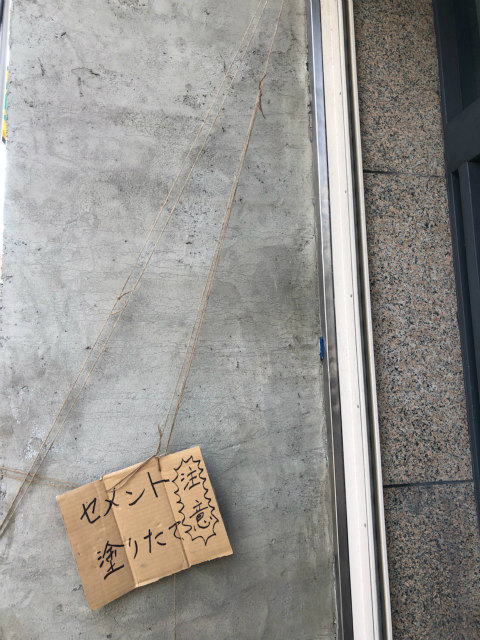 注意
セメント
塗りたて